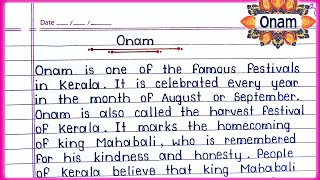 Onam
Date __/__/__
Onam
Onam is one of the famous festivals
in Kerala. It is celebrated every year
in the month of August or September.
Onam is also called the harvest festival
of Kerala. It marks the homecoming
of king Mahabali, who is remembered
for his kindness and honesty. People
of Kerala believe that king Mahabali